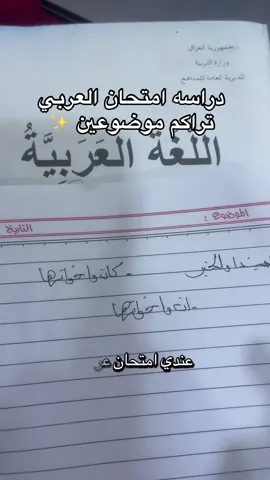 جمهورية العراق
وزارة التربية
المديرية العامة للمناهج
دراسه امتحان العربي
تراكم موضوعين ✨
اللُّغَةُ العَرَبِيَّةُ
الموضوع :
التاريخ
المبتدأ والخبر - كان واخواتها
- ان واخواتها
عندي امتحان عر